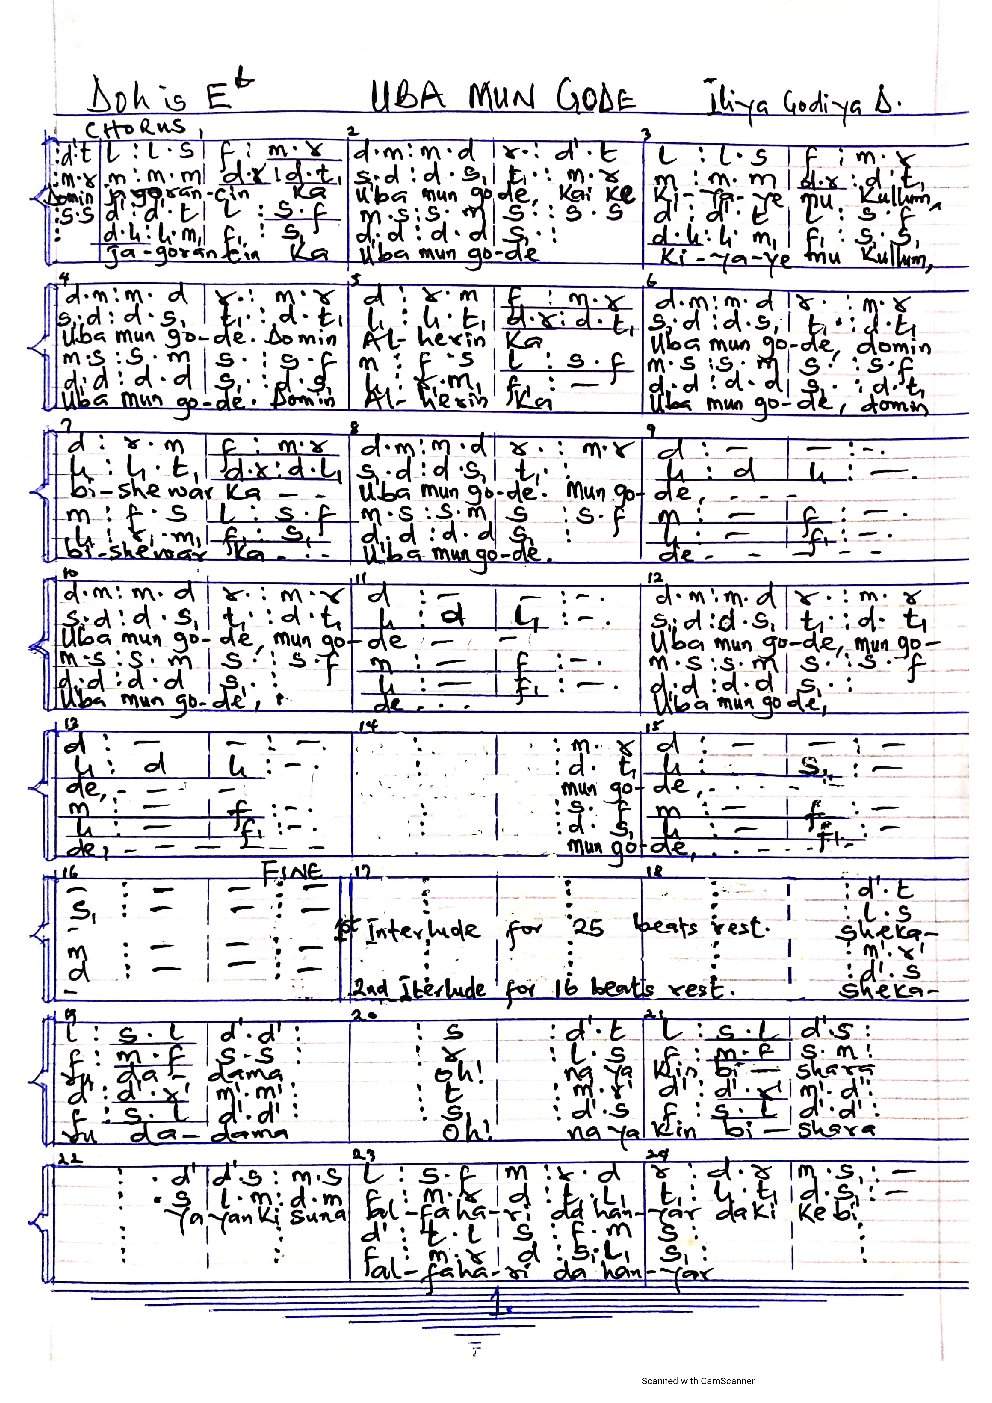 Doh is Eb UBA MUN GODE Iliya Godiya D.
CHORUS,
2 3
:d't l : l.s f : m.r d.m:m.d r.: d'.t l : l.s f : m.r
:m.r m : m.m d.r:d.t, s,.d:d.s, t,: m.r m : m.m d.r : d.t,
Domin ja-goran-cin Ka Uba mun go-de, Kai Ke Ki-ya-ye mu Kullum,
:s.s d : d.t l : s.f m.s:s.m s : s.s d : d.t l : s.f
: d.l,:l,.m, f, : s, d.d:d.d s, : : d.l,:l,.m, f, : s,.s,
ja-gorancin Ka Uba mun go-de Ki-ya-ye mu Kullum,
4 5 6
d.m:m.d r.: m.r d : r.m f : m.r d.m:m.d r.: m.r
s,.d:d.s, t,.: d.t, l, : l,.t, d.r:d.t, s,.d:d.s, t,.: d.t,
Uba mun go-de. Domin Al-herin Ka Uba mun go-de, domin
m.s:s.m s.: s.f m : f.s l : s.f m.s:s.m s.: s.f
d.d:d.d s, : d.s, l, : r.m, f, : — d.d:d.d s,.: d.t,
Uba mun go-de. Domin Al-herin Ka Uba mun go-de, domin
7 8 9
d : r.m f : m.r d.m:m.d r.: m.r d : — — : —.
l, : l,.t, d.r:d.l, s,.d:d.s, t,.: l, : d l, : —.
bi-shewar Ka - - Uba mun go-de. Mun go-de, - - -
m : f.s l : s.f m.s:s.m s : s.f m : — f : —.
l, : r.m, f, : s, d.d:d.d s, : l, : — f, : —.
bi-shewar Ka - - - Uba mun go-de. de - - - -
10 11 12
d.m:m.d r.: m.r d : — — : —. d.m:m.d r.: m.r
s,.d:d.s, t,: d.t, l, : d l, : —. s,.d:d.s, t,.: d.t,
Uba mun go-de, mun go-de — - — Uba mun go-de, mun go-
m.s:s.m s.: s.f m : — f : —. m.s:s.m s.: s.f
d.d:d.d s,.: l, : — f, : —. d.d:d.d s,.:
Uba mun go-de, de - - - Uba mun gode,
13 14 15
d : — — : —. : : m.r d : — — : —
l, : d l, : —. : : d.t, l, : s, : —
de, - - - mun go-de, - - - -
m : — f : —. : : s.f m : — f : —.
l, : — f, : —. : : d.s, l, : — f, : —.
de, - - - - mun go-de, - - - -
FINE
16 17 18
— : — — : — : : : : : : d'.t
s, : — — : — : : : : : : l.s
- 1st Interlude for 25 beats rest. sheka-
m : — — : — : : : : : : m'.r'
d : — — : — : : : : : : d'.s
- 2nd Iterlude for 16 beats rest. sheka-
19 20 21
l : s.l d'.d' : : s : d'.t l : s.l d'.s :
f : m.f s.s : : r : l.s f : m.f s.m :
ru da - dama Oh! na ya Kin bi - shara
d' : d'.r' m'.m' : : t : m'.r' d' : d'.r' m'.d' :
f : s.l d'.d' : : s : d'.s f : s.l d'.d' :
ru da - dama Oh! na ya Kin bi - shara
22 23 24
: .d' d'.s : m.s l : s.f m : r.d r : d.r m.s, : —
: .s l.m : d.m f : m.r d : t,.l, t, : l,.t, d.s, : —
Ya yanki suna fal-faha-ri da han-yar daki Ke bi
: : d' : t.l s : f.m s :
: : f : m.r d : s,.l, s, :
fal-faha-ri da han-yar
1.
Scanned with CamScanner